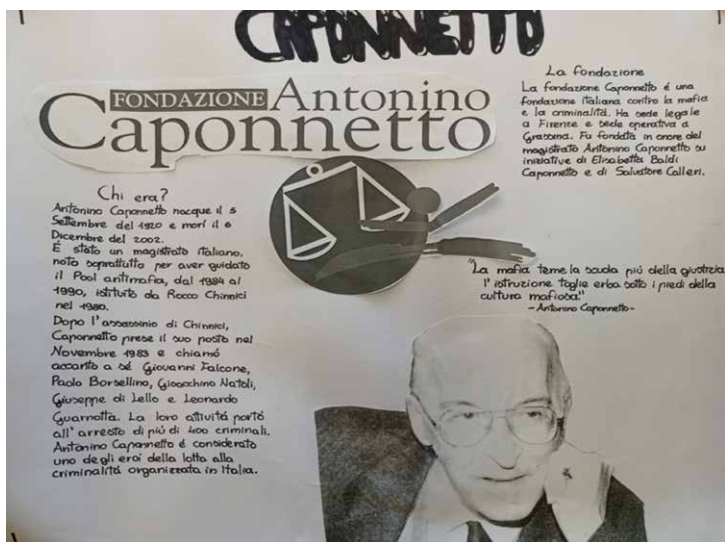 CAPONNETTO
FONDAZIONE Antonino
Caponnetto
La fondazione
La fondazione Caponnetto é una
fondazione italiana contro la mafia
e la criminalitá. Ha sede legale
a Firenze e sede operativa a
Grassina. Fu fondata in onore del
magistrato Antonino Caponnetto su
iniziative di Elisabetta Baldi
Caponnetto e di Salvatore Calleri.
Chi era?
Antonino Caponnetto nacque il 5
Settembre del 1920 e morí il 6
Dicembre del 2002.
É stato un magistrato italiano,
noto soprattutto per aver guidato
il Pool antimafia, dal 1984 al
1990, istituito da Rocco Chinnici
nel 1980.
Dopo l'assassinio di Chinnici,
Caponnetto prese il suo posto nel
Novembre 1983 e chiamó
accanto a sé Giovanni Falcone,
Paolo Borsellino, Gioacchino Natoli,
Giuseppe di Lello e Leonardo
Guarnotta. La loro attivitá portó
all'arresto di piú di 400 criminali.
Antonino Caponnetto é considerato
uno degli eroi della lotta alla
criminalitá organizzata in Italia.
"La mafia teme la scuola piú della giustizia
l'istruzione toglie erba sotto i piedi della
cultura mafiosa."
-Antonino Caponnetto-